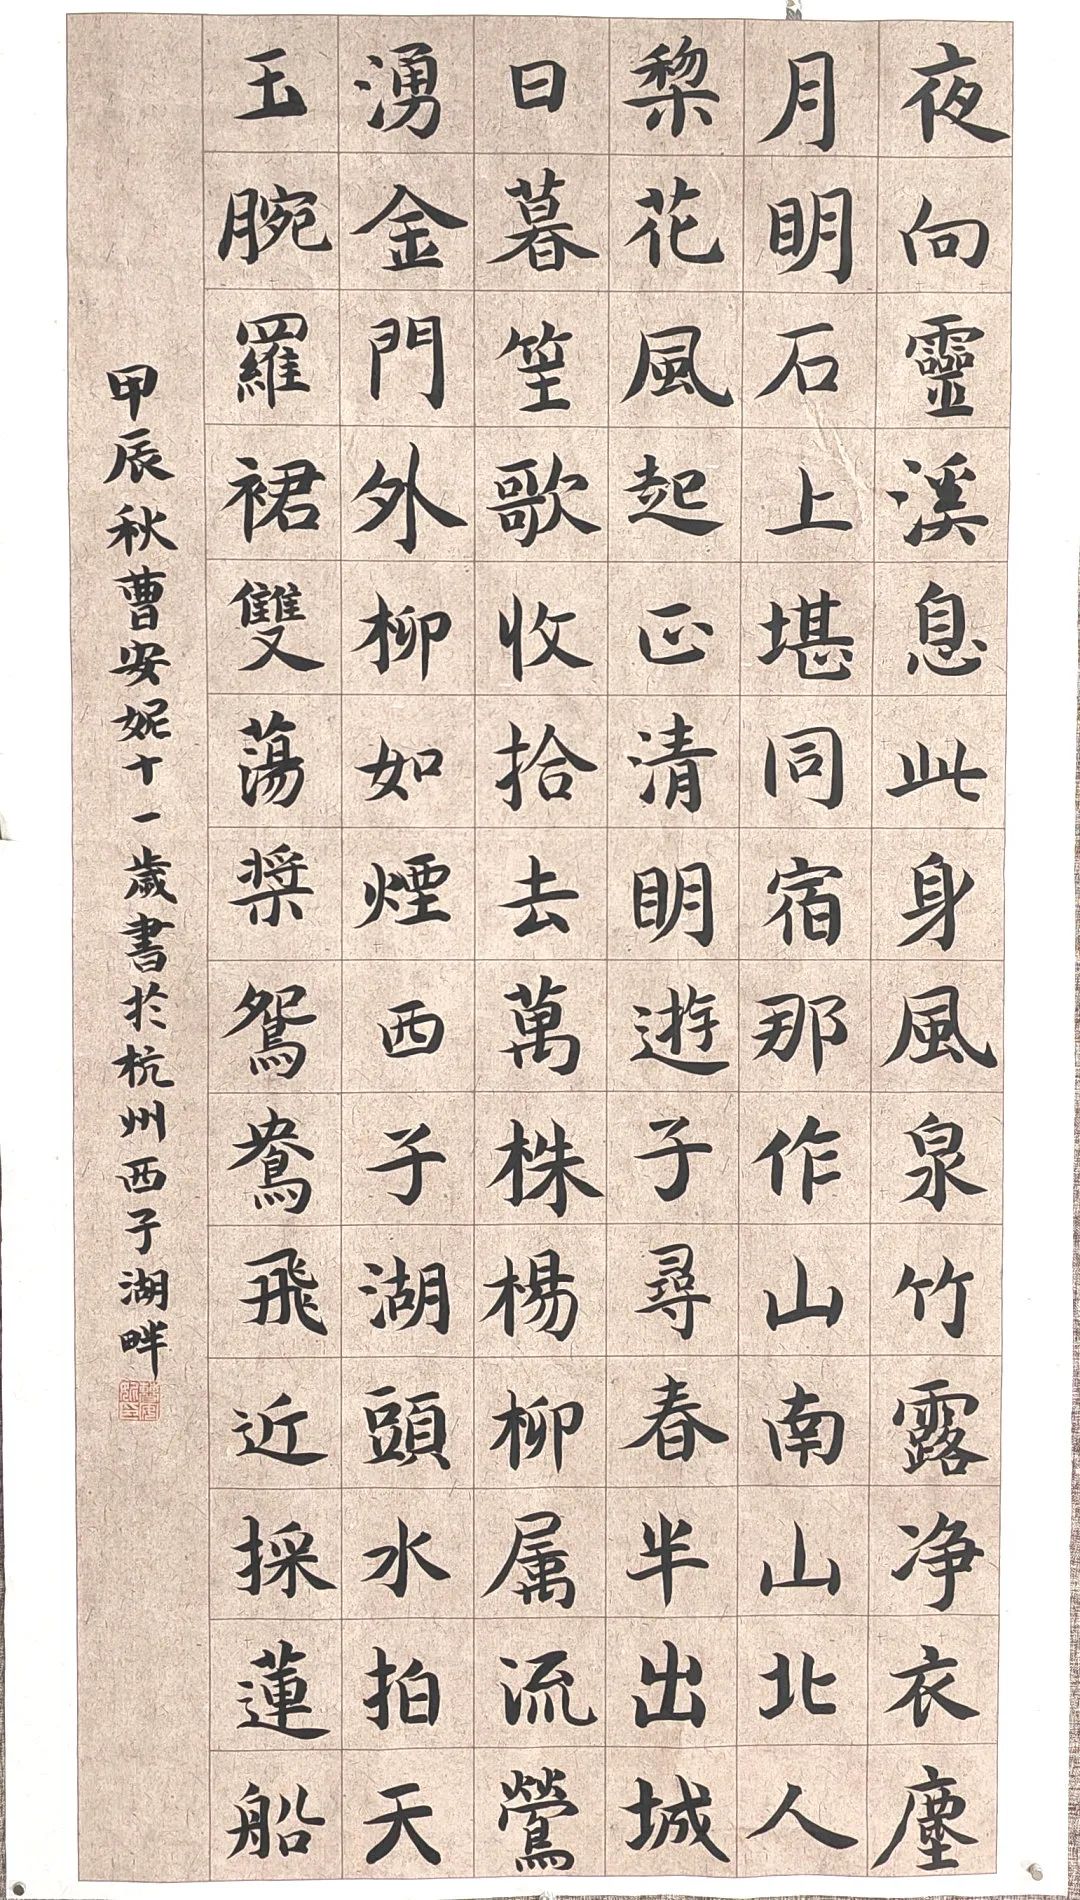 夜向靈溪息此身風泉竹露净衣塵
月明石上堪同宿那作山南山北人
棃花風起正清明遊子尋春半出城
日暮笙歌收拾去萬株楊柳属流鶯
湧金門外柳如煙西子湖頭水拍天
玉腕羅裙雙蕩槳鴛鴦飛近採蓮船
甲辰秋曹安妮十一歲書於杭州西子湖畔